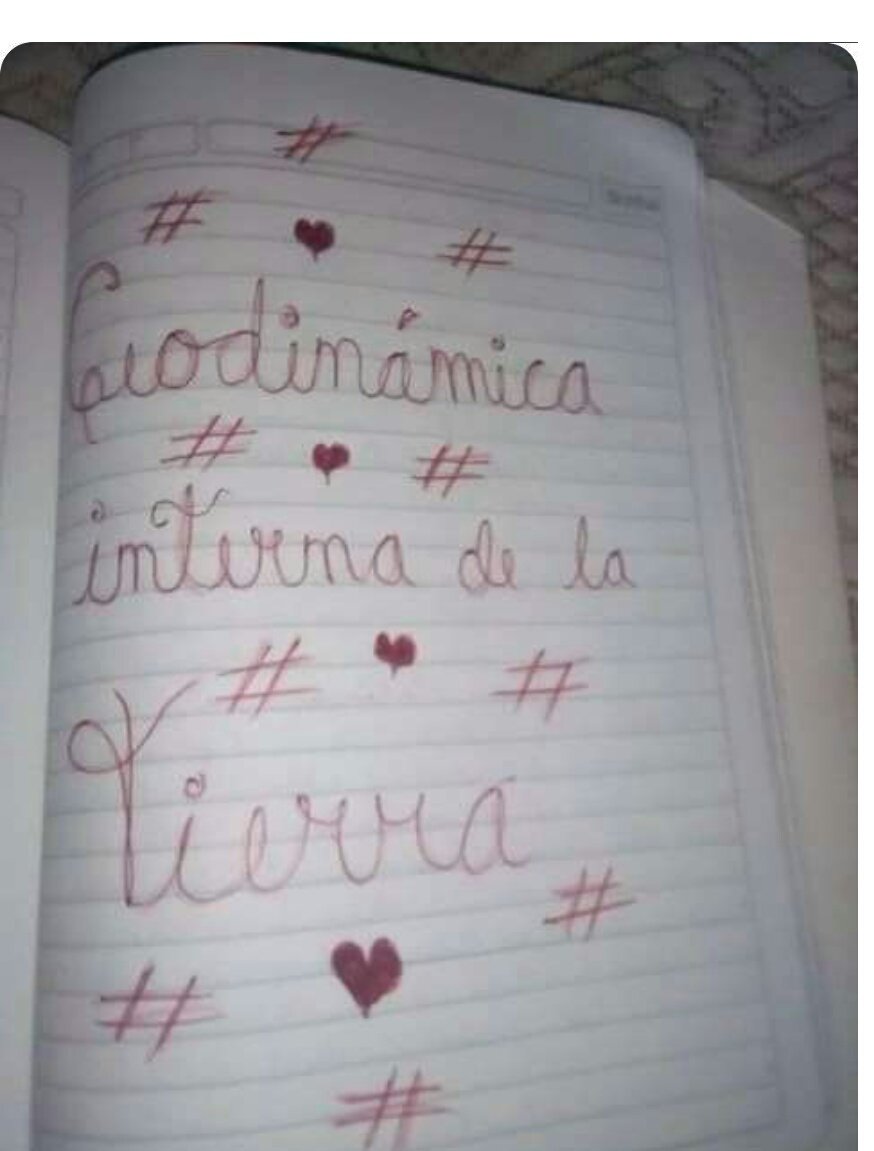 #
# ♥ #
Geodinámica
# ♥ #
interna de la
# ♥ #
Tierra
#
# ♥
#